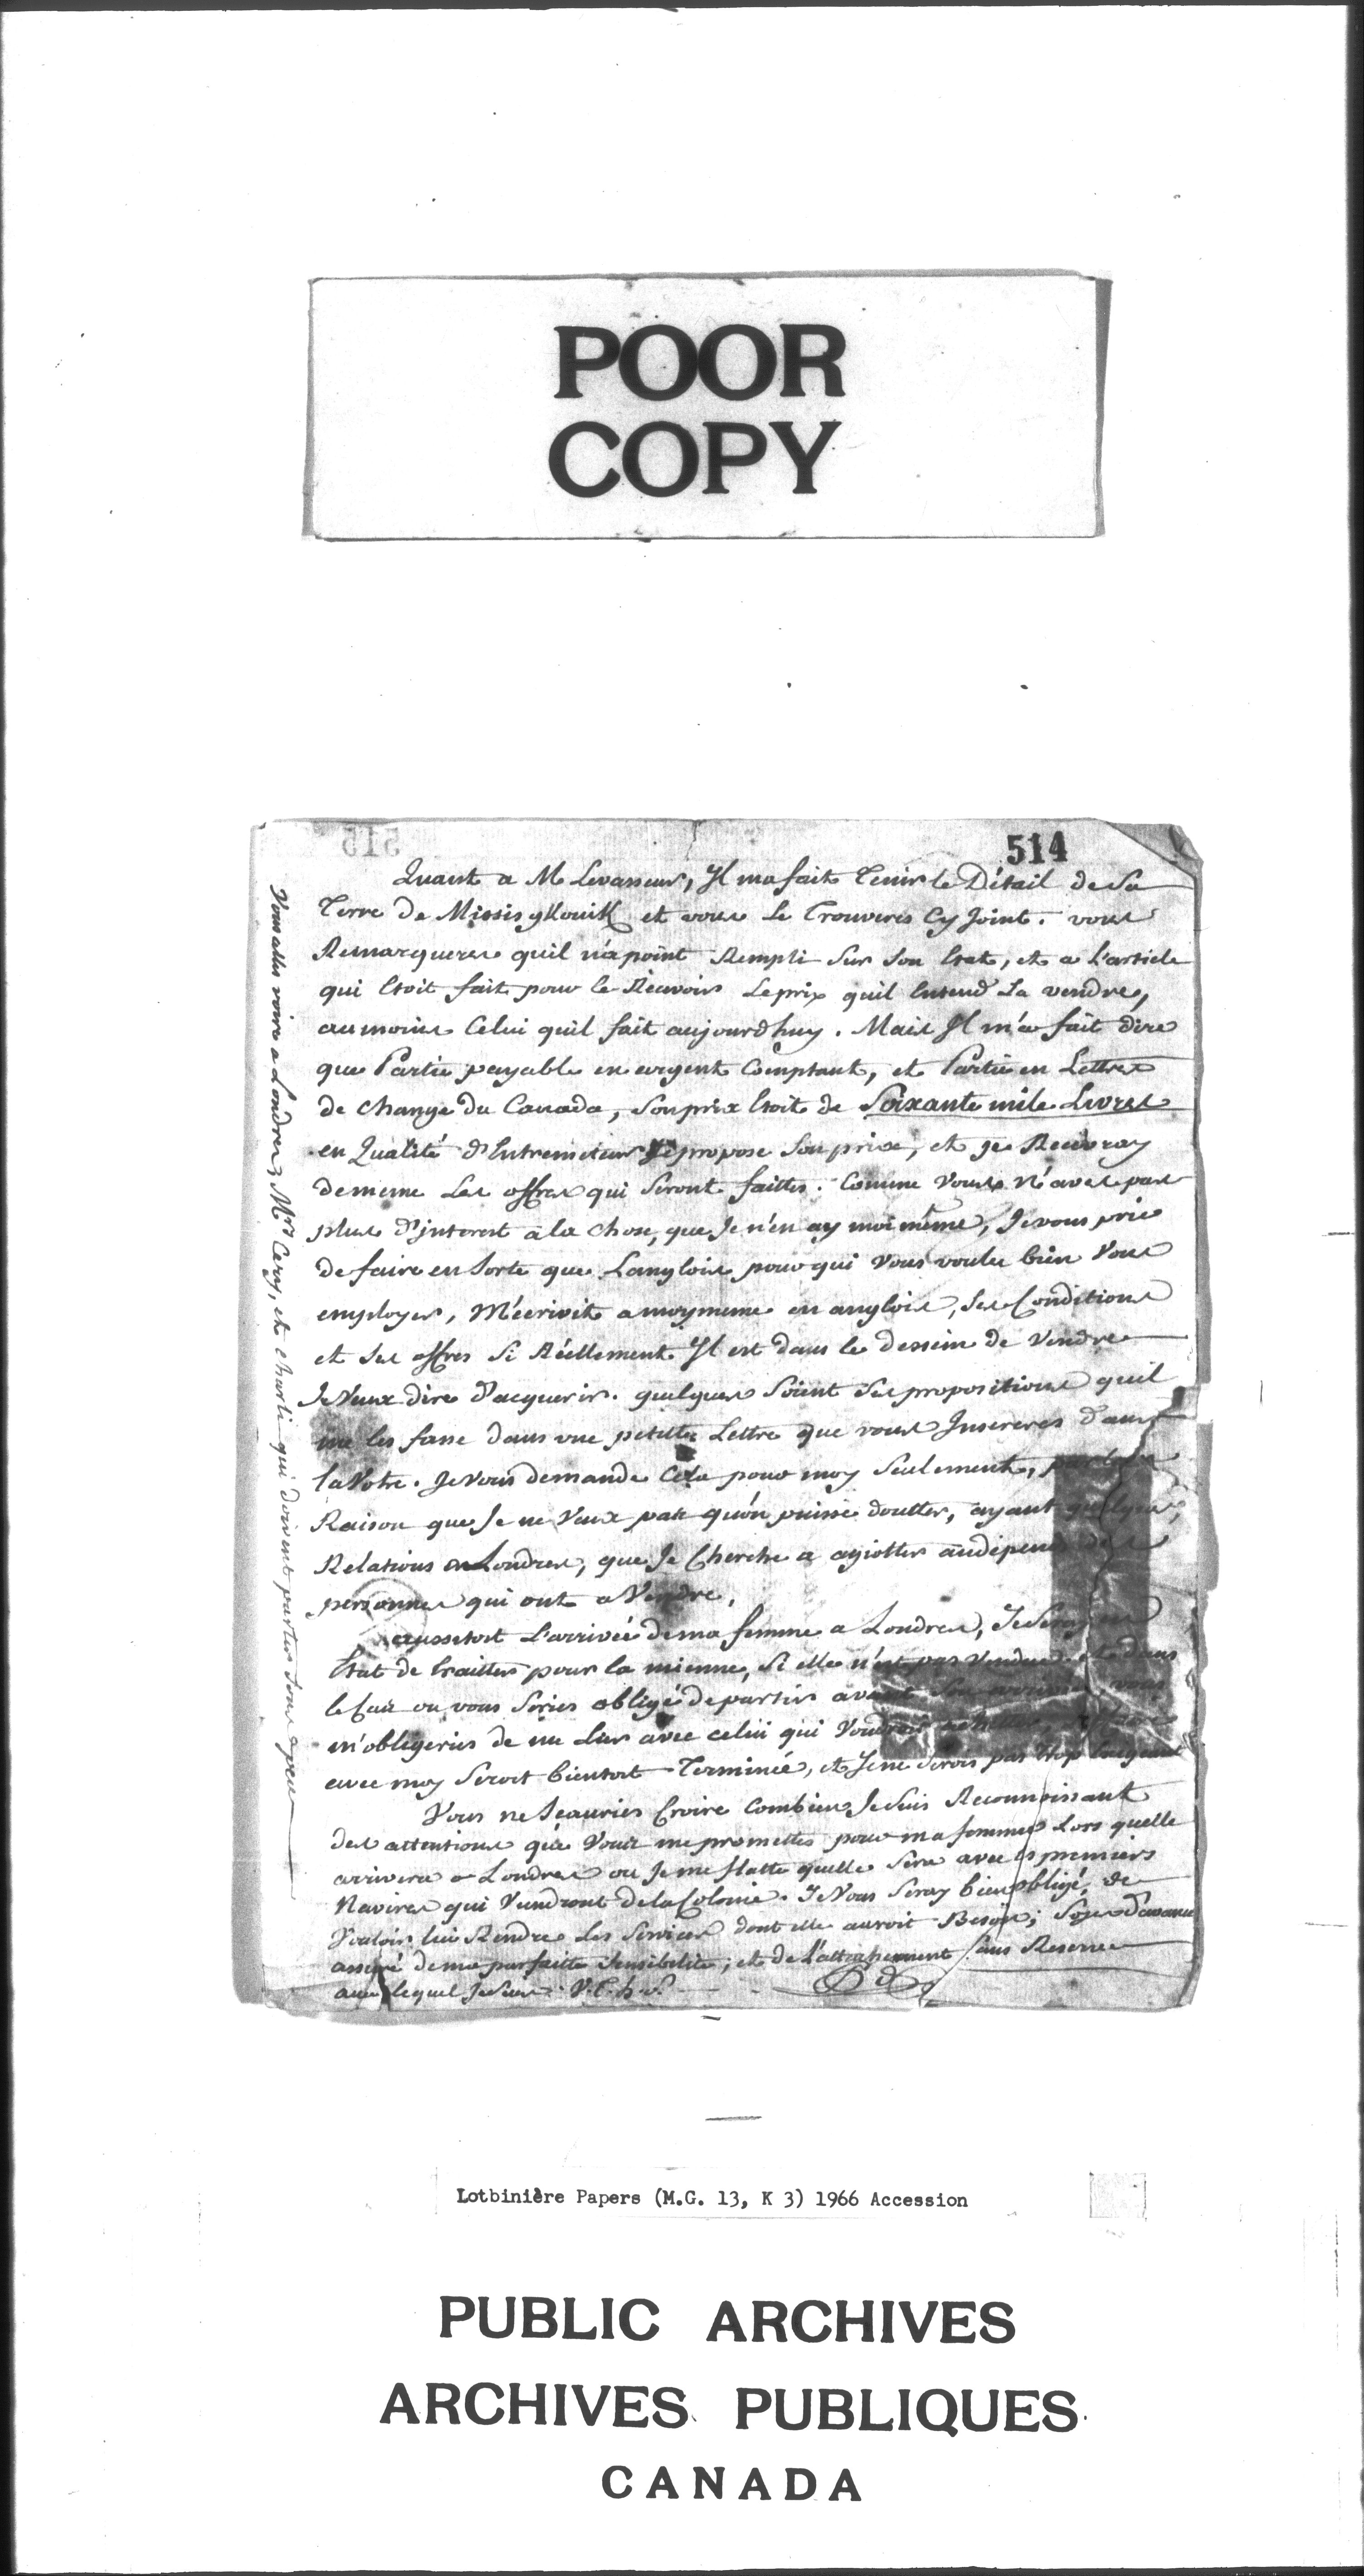 POOR
COPY
515
514
Quant a M Levasseur, Il ma fait Tenir le Détail de Sa
Terre de Missiskouik et vous Le Trouveres Cy Joint. vous
Remarqueres quil n'a point Rempli Sur Son Etat, et a L'article
qui Etoit fait pour le Recevoir Le prix quil Entend La vendre,
au moins Celui quil fait aujourdhuy. Mais Il m'a fait dire
que Partie payable en argent Comptant, et Partie en Lettres
de change du Canada, Son prix Etoit de Soixante mile Livres
en Qualité d'Entremeteur Je propose Son prix, et je Recevray
de meme Les offres qui Seront faittes. Comme Vous N'aves pas
plus d'interest a la chose, que Je n'en ay moi même, Je vous prie
de faire en Sorte que Langlois pour qui Vous voulu bien Vous
employer, M'écrivit a moymeme en anglois, Ses Conditions
et Ses offres Si Réellement Il est dans le dessein de Vendre
Je Veux dire d'acquerir. quelques Soient Ses propositions quil
me les fasse dans une petitte Lettre que vous Insereres dans
la Votre. Je Vous demande Cela pour moy Seulement, par
Raison que Je ne Veux pas qu'on puisse doutter, ayant quelques
Relations en Londres, que Je Cherche a agiotter au depend des
personnes qui ont a Vendre.
aussetost L'arrivée de ma femme a Londres, Je Seray en
Etat de traitter pour la mienne, Si elle n'est pas Vendue et dans
le Cas ou vous Series obligé de partir avant Son arrivée Vous
m'obligeries de me Lier avec celui qui Voudroit
avec moy Seroit bientost Terminée, et Je ne Serois pas trop Exigeant
Vous ne Scauries Croire Combien Je Suis Reconnoissant
des attentions que Vous me promettes pour ma femme Lors quelle
arrivera a Londres ou Je me flatte quelle Sera avec les premiers
Navires qui Viendront de la Colonie. Je Vous Seray bien obligé, de
Vouloir lui Rendre Les Services dont elle auroit Besoin; Soyes d'avance
assuré de ma parfaitte Sensibilité, et de L'attachement Sans Reserve
avec lequel Je Suis. V. T. h. S.
Vous alles voire a Londres, Mrs Cery, et charli qui doivent partir Sous a peu
Lotbinière Papers (M.G. 13, K 3) 1966 Accession
PUBLIC ARCHIVES
ARCHIVES PUBLIQUES
CANADA